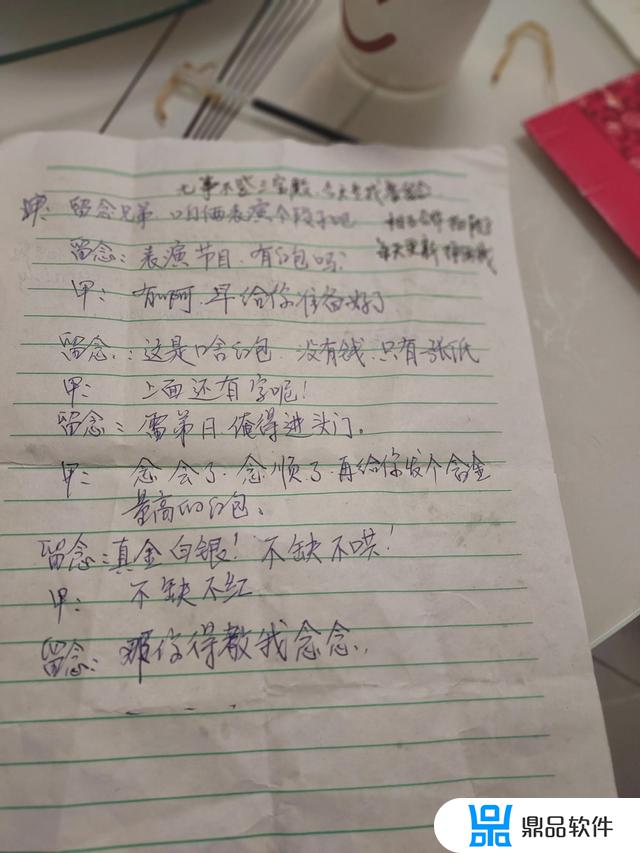 无事不登三宝殿,今天是我
甲:留念兄弟,咱俩表演个段子吧
每天更新
留念:表演节目,有红包吗?
甲:有啊,早给你准备好了
留念:这是啥红包,没有钱,只有张纸
甲:上面还有字呢!
留念:需弟日,俺得进头门。
甲:念会了,念顺了,再给你发个含金
量高的红包、
留念:真金白银!不缺不哄!
甲:不缺不红
留念:那你得教我念念.
鼎品软件